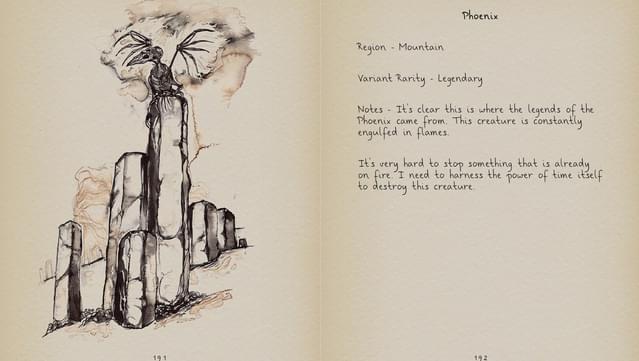 Phoenix
Region - Mountain
Variant Rarity - Legendary
Notes - It's clear this is where the legends of the
Phoenix came from. This creature is constantly
engulfed in flames.
It's very hard to stop something that is already
on fire. I need to harness the power of time itself
to destroy this creature.
191
192